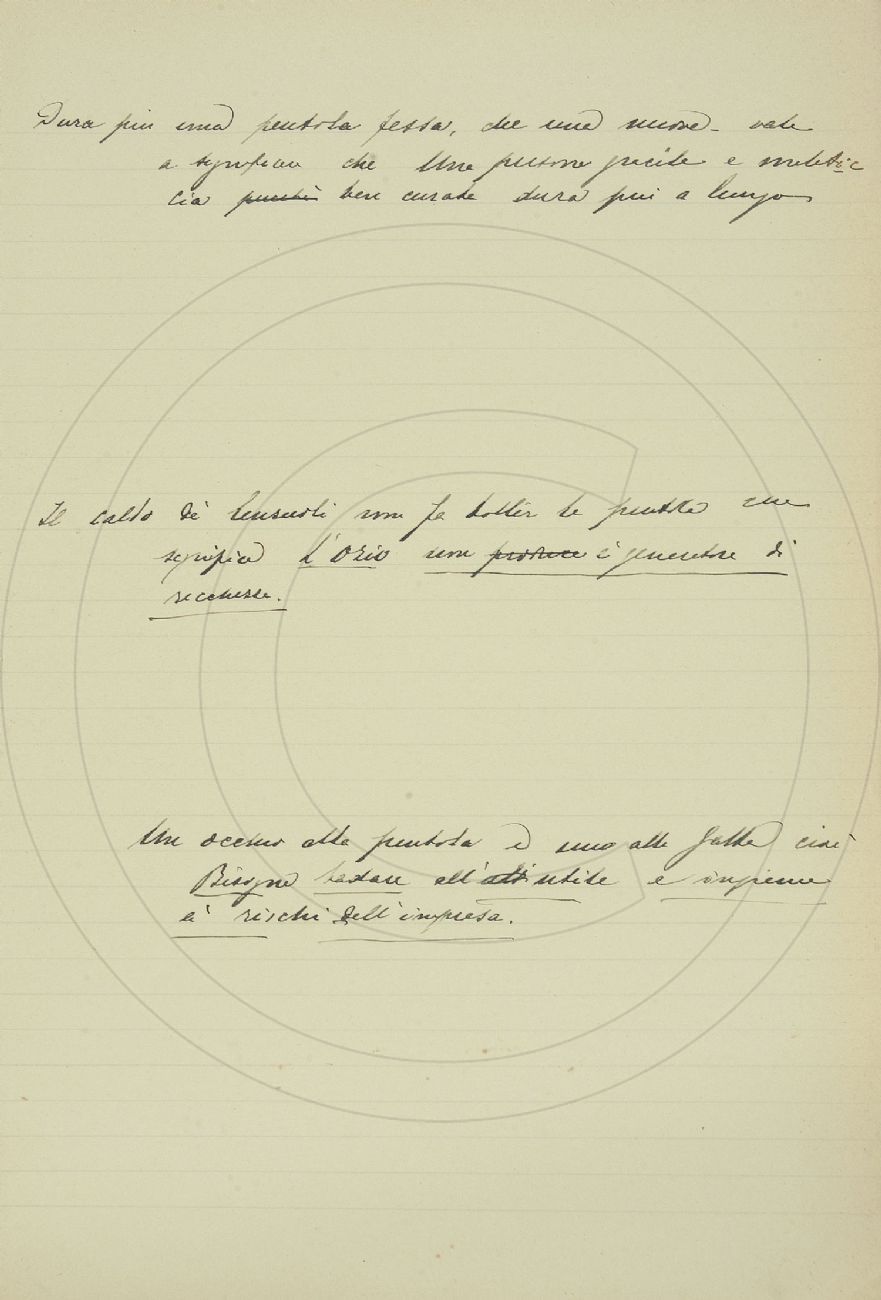 Dura piu una pentola fessa, che una nuova - vale
a significare che Una persona gracile e malatic
cia purché ben curata dura piu a lungo
Il caldo de' lensuoli non fa bollir la pentola che
significa L'ozio non produce è generatore di
recchesse.
Un occhio alla pentola e uno alla Gatta cioè
Bisogna badare all' utile e insieme
ai rischi dell'impresa.